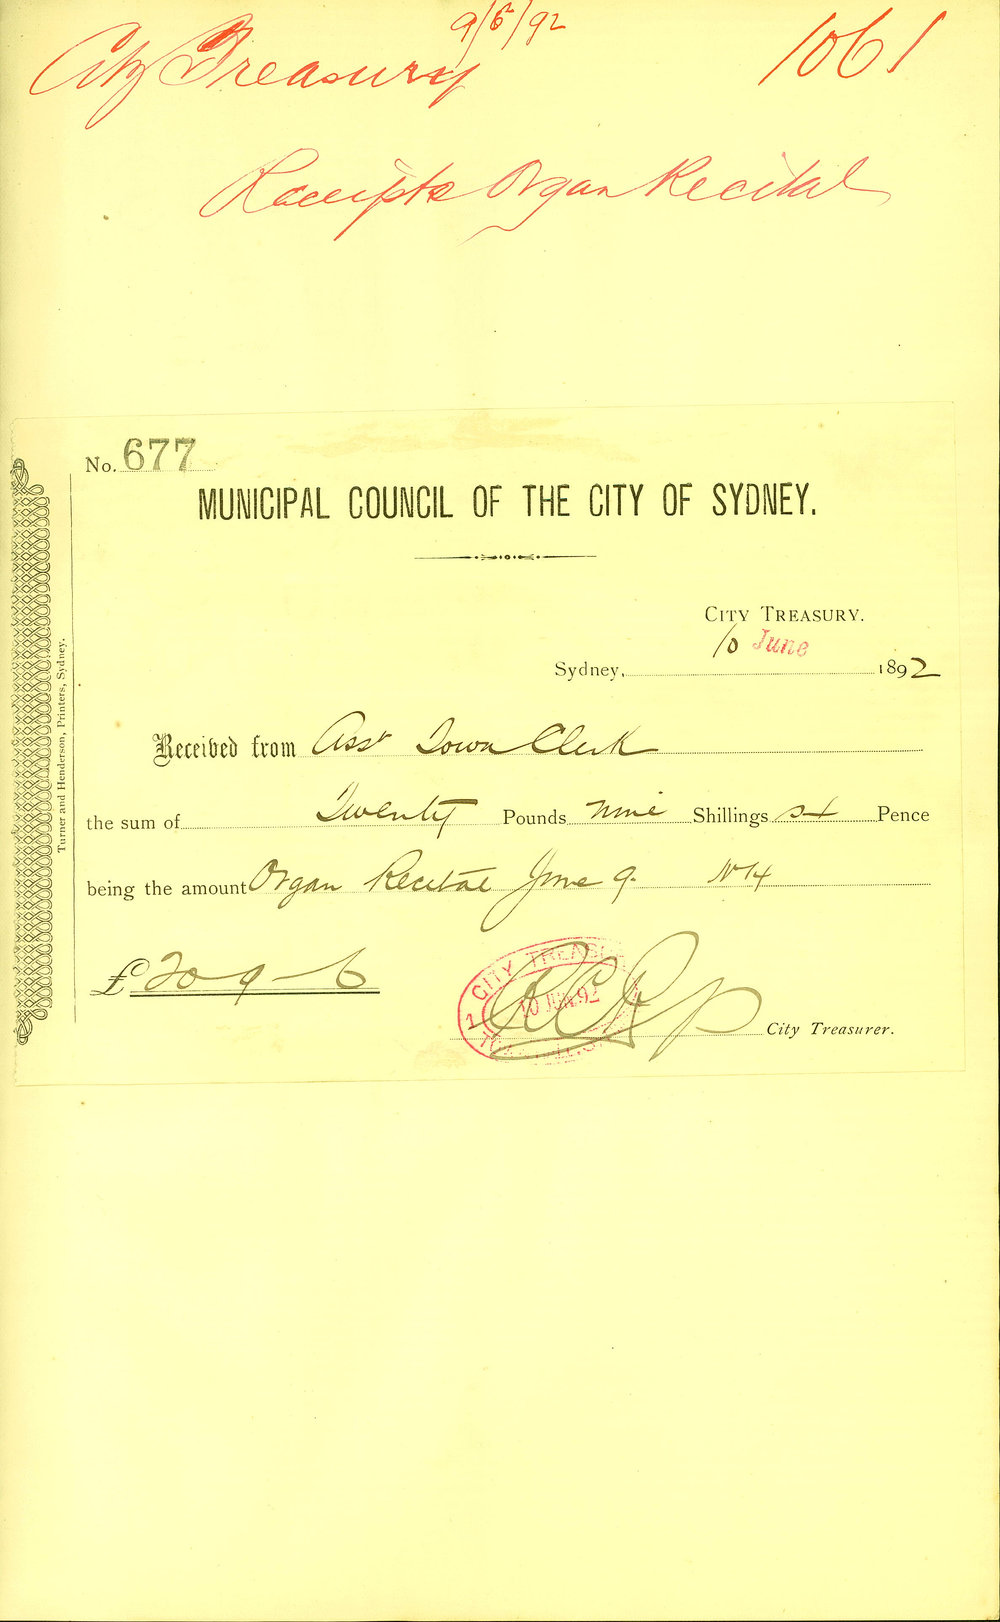 9/6/92
City Treasury
1061
Receipts Organ Recital
No. 677
MUNICIPAL COUNCIL OF THE CITY OF SYDNEY.
CITY TREASURY.
Sydney, 10 June 1892
Received from Asst Town Clerk
the sum of Twenty Pounds nine Shillings six Pence
being the amount Organ Recital June 9. No 4
£20-9-6
CITY TREASU
10 JUN. 92
1
City Treasurer.
Turner and Henderson, Printers, Sydney.